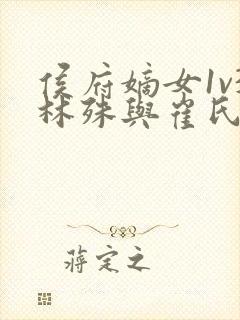 侯府嫡女1v
林殊與崔氏
蔣定之